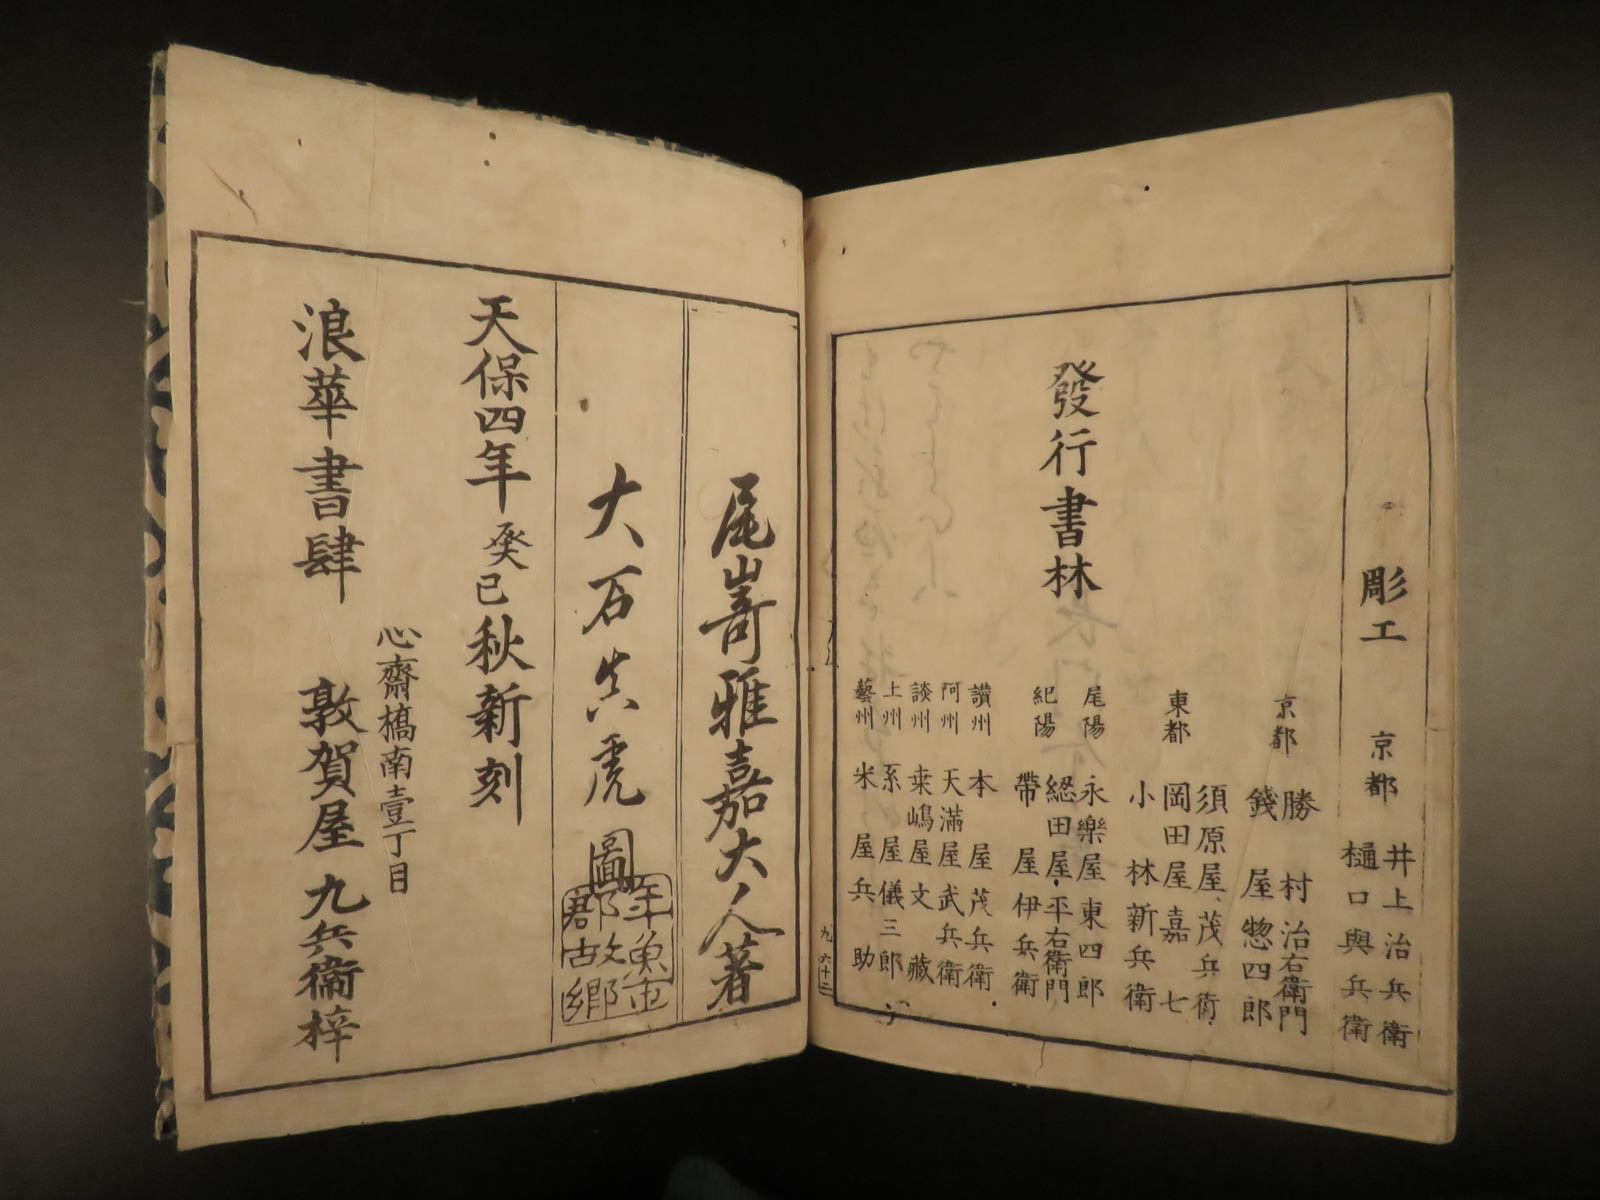 彫工 京都 井上治兵衛
樋口與兵衛
發行書林
京都 勝村治右衛門
錢屋惣四郎
東都 須原屋茂兵衛
岡田屋嘉七
小林新兵衛
尾陽 永樂屋東四郎
紀陽 綛田屋平右衛門
帶屋伊兵衛
讃州 本屋茂兵衛
阿州 天満屋武兵衛
談州 来嶋屋文藏
土州 系屋儀三郎
藝州 米屋兵助
九 六十二
尾嵜雅嘉大人著
大石真虎圖
天保四年癸巳秋新刻
心齋橋南壹丁目
浪華書肆 敦賀屋九兵衛梓